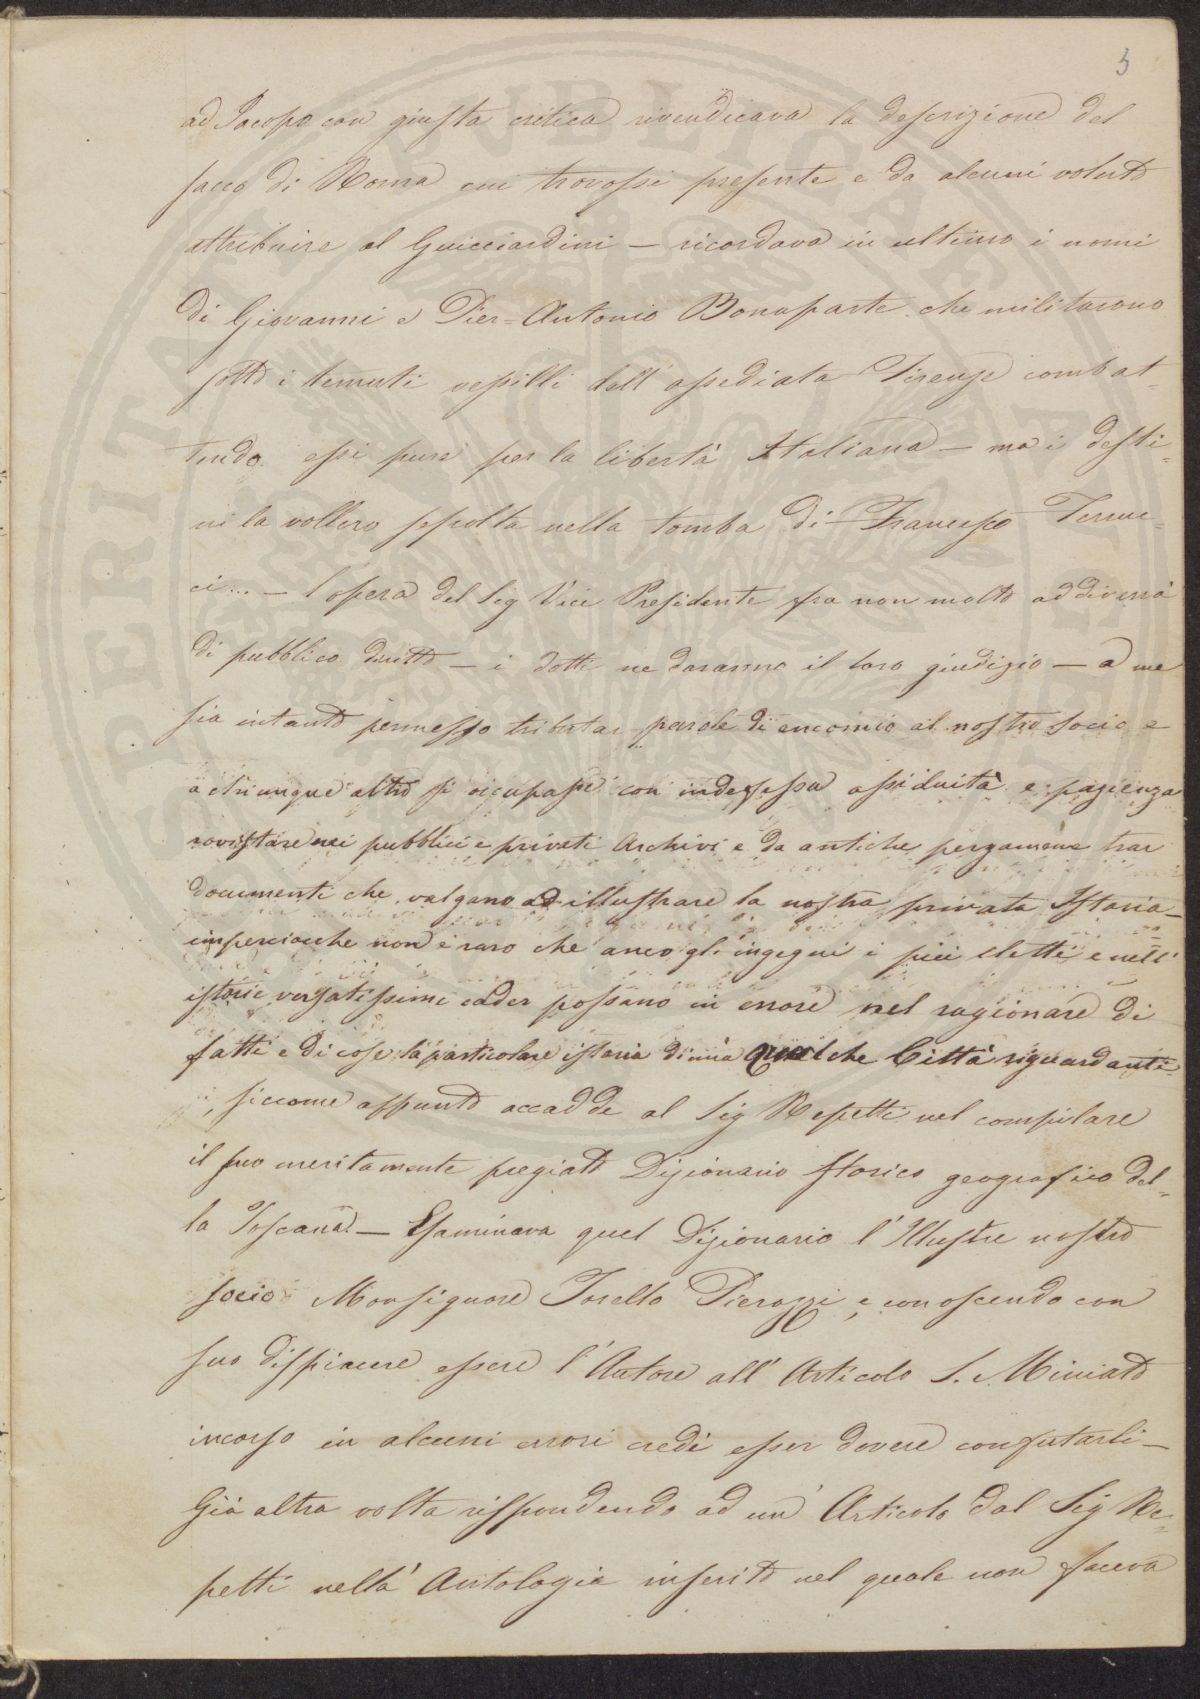 3
ad Jacopo con giusta critica rivendicava la descrizione del
sacco di Roma cui trovossi presente e da alcuni voluto
attribuire al Guicciardini — ricordava in ultimo i nomi
di Giovanni e Pier=Antonio Bonaparte che militarono
sotto i temuti vessilli dell' assediata Firenze combat=
tendo essi pure per la libertà Italiana — ma i desti=
ni la vollero sepolta nella tomba di Francesco Ferruc=
ci... — l'opera del Sig Vice Presidente fra non molto addiverrà
di pubblico diritto — i dotti ne daranno il loro giudizio — a me
sia intanto permesso tributar parole di encomio al nostro socio e
a chiunque altro si occupasse con indefessa assiduità e pazienza
rovistare nei pubblici e privati Archivi e da antiche pergamene trar
documenti che valgano ad illustrare la nostra privata Istoria —
imperciocche non è raro che anco gl'ingegni i più eletti e nell'
istorie versatissimi cader possano in errore nel ragionare di
fatti e di cose la particolare istoria di una qualche Città riguardanti
, siccome appunto accadde al Sig Repetti nel compilare
il suo meritamente pregiato Dizionario storico geografico del=
la Toscana. — Esaminava quel Dizionario l'Illustre nostro
socio Monsignore Torello Pierazzi, e conoscendo con
suo dispiacere essere l'Autore all' Articolo S. Miniato
incorso in alcuni errori credè esser dovere confutarli —
Già altra volta rispondendo ad un' Articolo dal Sig Re=
petti nella Antologia inserito nel quale non faceva
PERITATI PUBLICAE